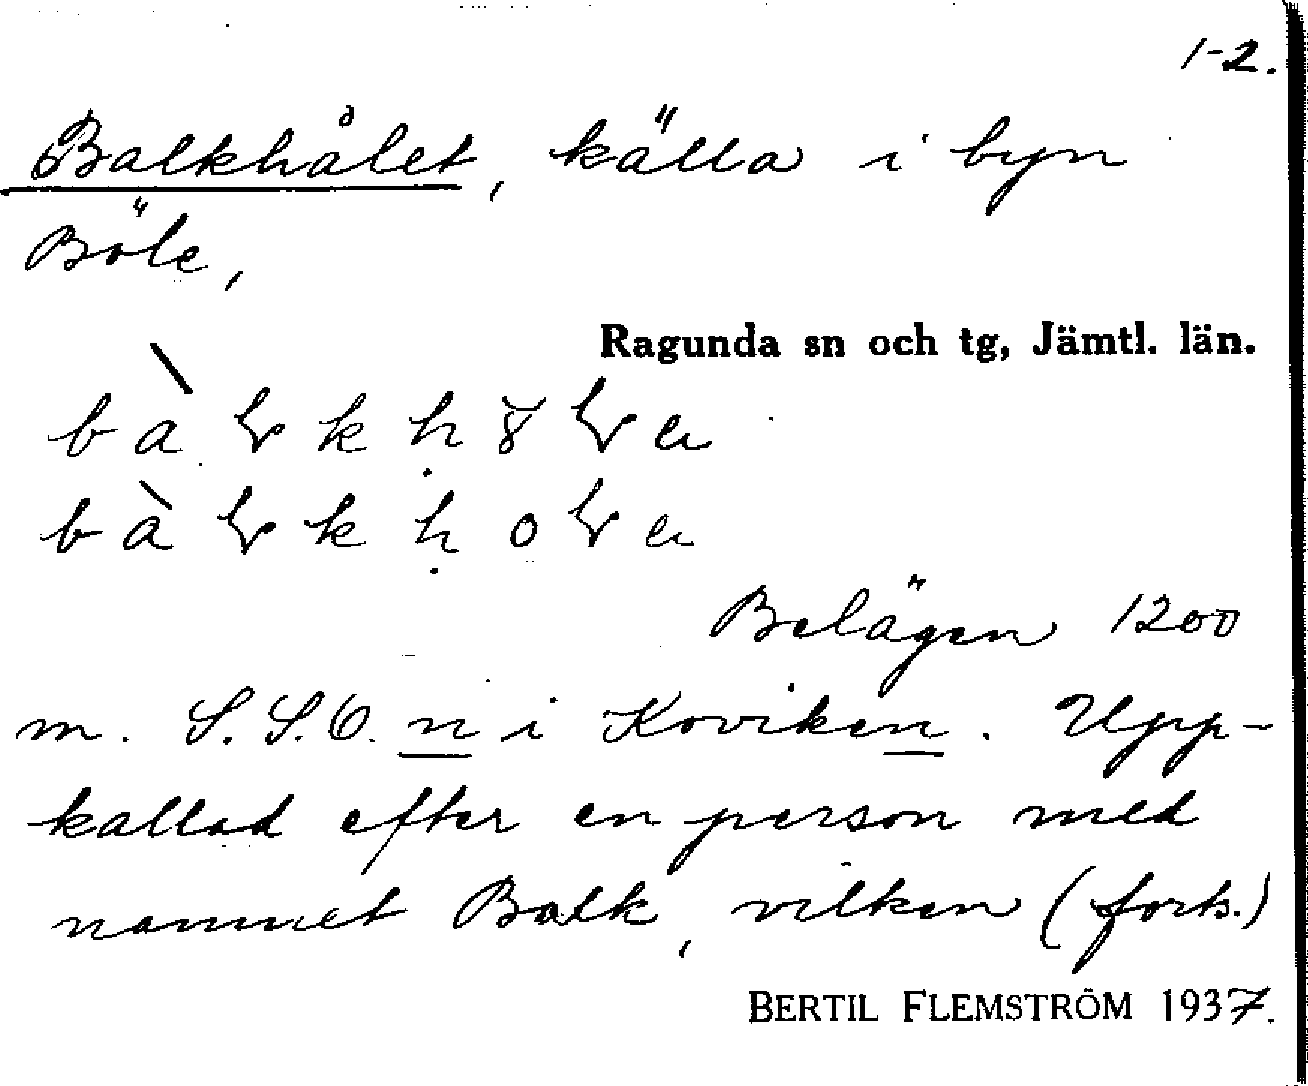 1-2.
Balkhålet, källa i byn
Böle,
Ragunda sn och tg, Jämtl. län.
Belägen 1200
m. S.S.O. n i Koviken. Upp-
kallad efter en person med
namnet Balk, vilken (forts.)
BERTIL FLEMSTRÖM 1937.